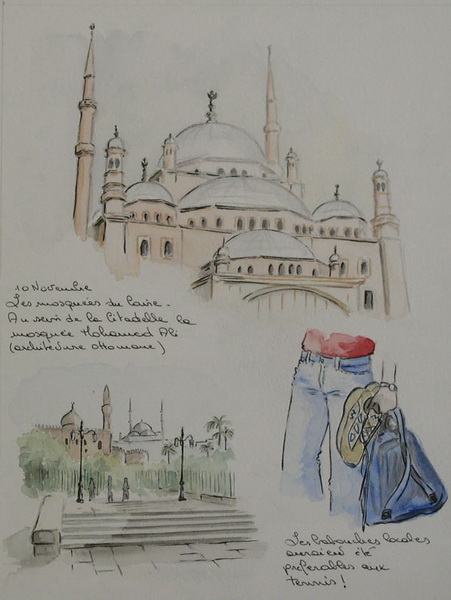 10 Novembre
Les mosquées du Caire.
Au sein de la Citadelle la
mosquée Mohamed Ali
(architecture ottomane)
Les babouches locales
auraient été
préférables aux
tennis !